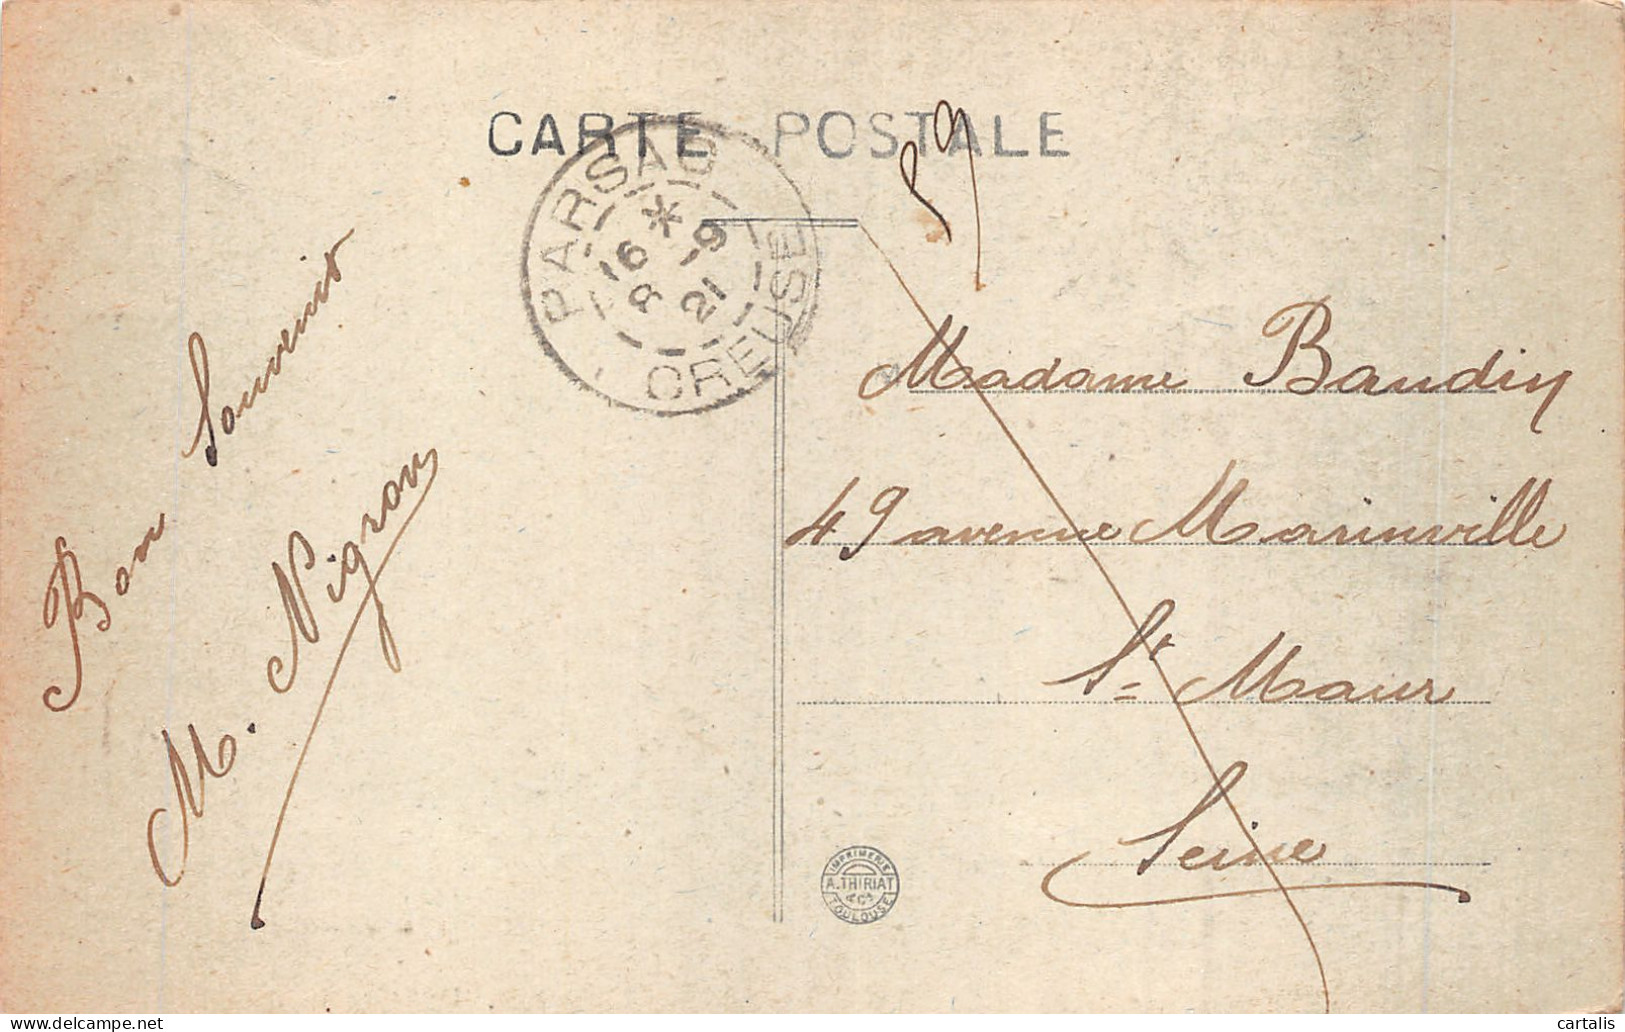 CARTE POSTALE
PARSAC
16 * 8 - 9
21
CREUSE
59
Bon Souvenir
M. Nigron
Madame Baudin
49 avenue Marinville
St Maur
Seine
IMPRIMERIE
A. THIRIAT
& Cie
TOULOUSE
cartalis